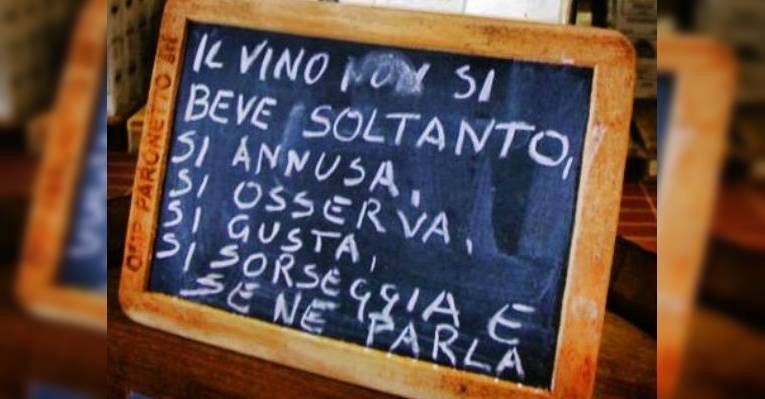 IL VINO NON SI
BEVE SOLTANTO,
SI ANNUSA,
SI OSSERVA,
SI GUSTA,
SI SORSEGGIA E
SE NE PARLA
PARONETTO